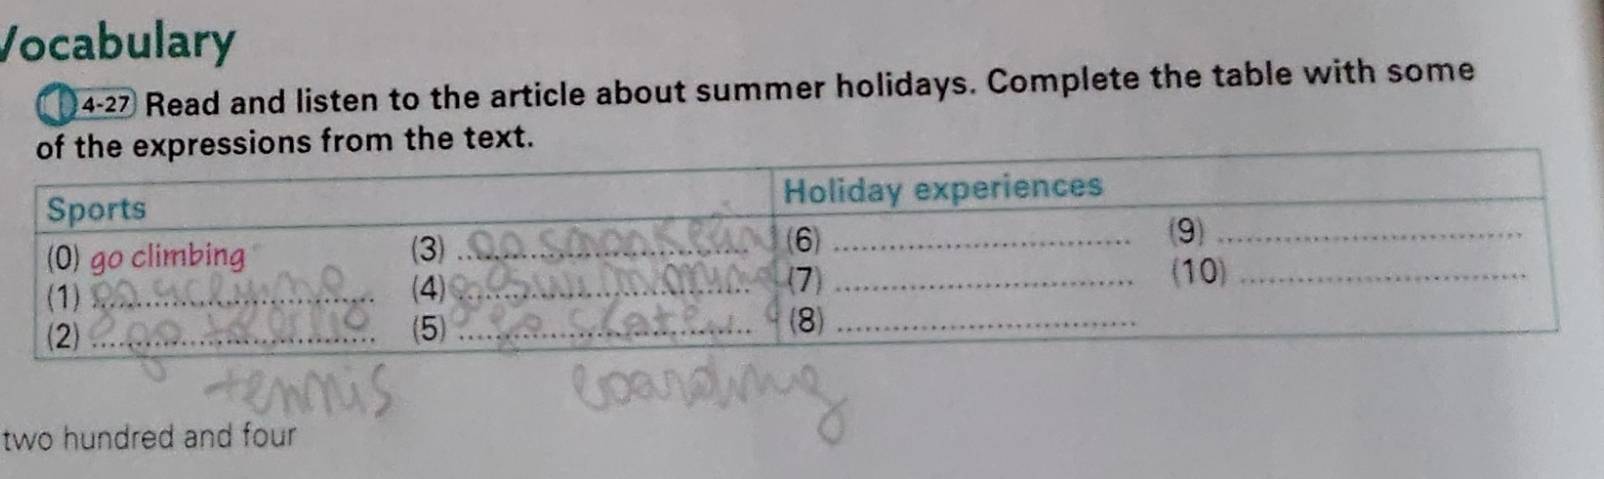 Vocabulary
4-27 Read and listen to the article about summer holidays. Complete the table with some
of the expressions from the text.
Sports Holiday experiences
(0) go climbing (3) go (6) (9)
(1) go (4) go swimming (7) (10)
(2) go to (5) go (8)
tennis boarding
two hundred and four